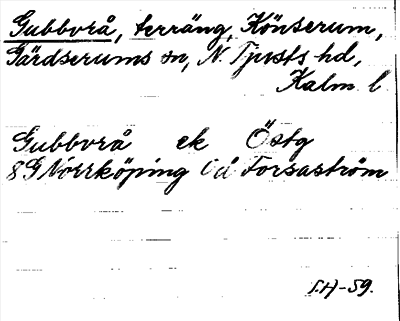 Gubbvrå, terräng, Könserum,
Gärdserums sn, N. Tjusts hd,
Kalm. l
Gubbvrå ek Östg
8G Norrköping Öå Forsaström
I.H-59.